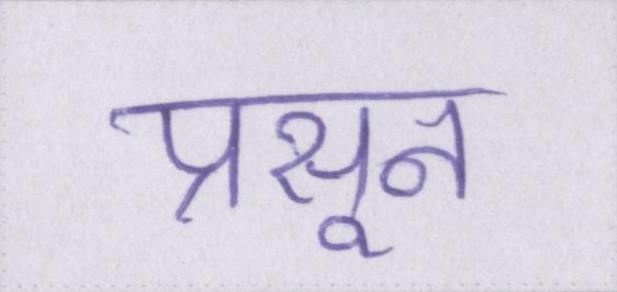 प्रसून